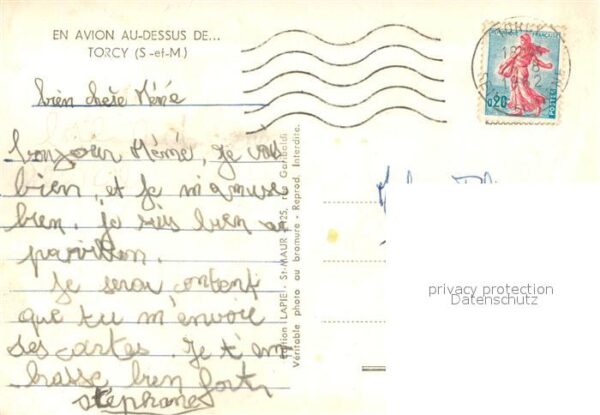 EN AVION AU-DESSUS DE...
TORCY (S-et-M)
bien chère Mémé
bonjour Mémé, je vais
bien, et je m'amuse
bien. je suis bien au
pavillon.
Je serai content
que tu m'envoie
des cartes. Je t'em
brasse bien fort
stéphane
Edition LAPIE - St-MAUR - 25, rue Garibaldi
Véritable photo au bromure - Reprod. Interdite.
FRANÇAISE
0,20
POSTES
privacy protection
Datenschutz